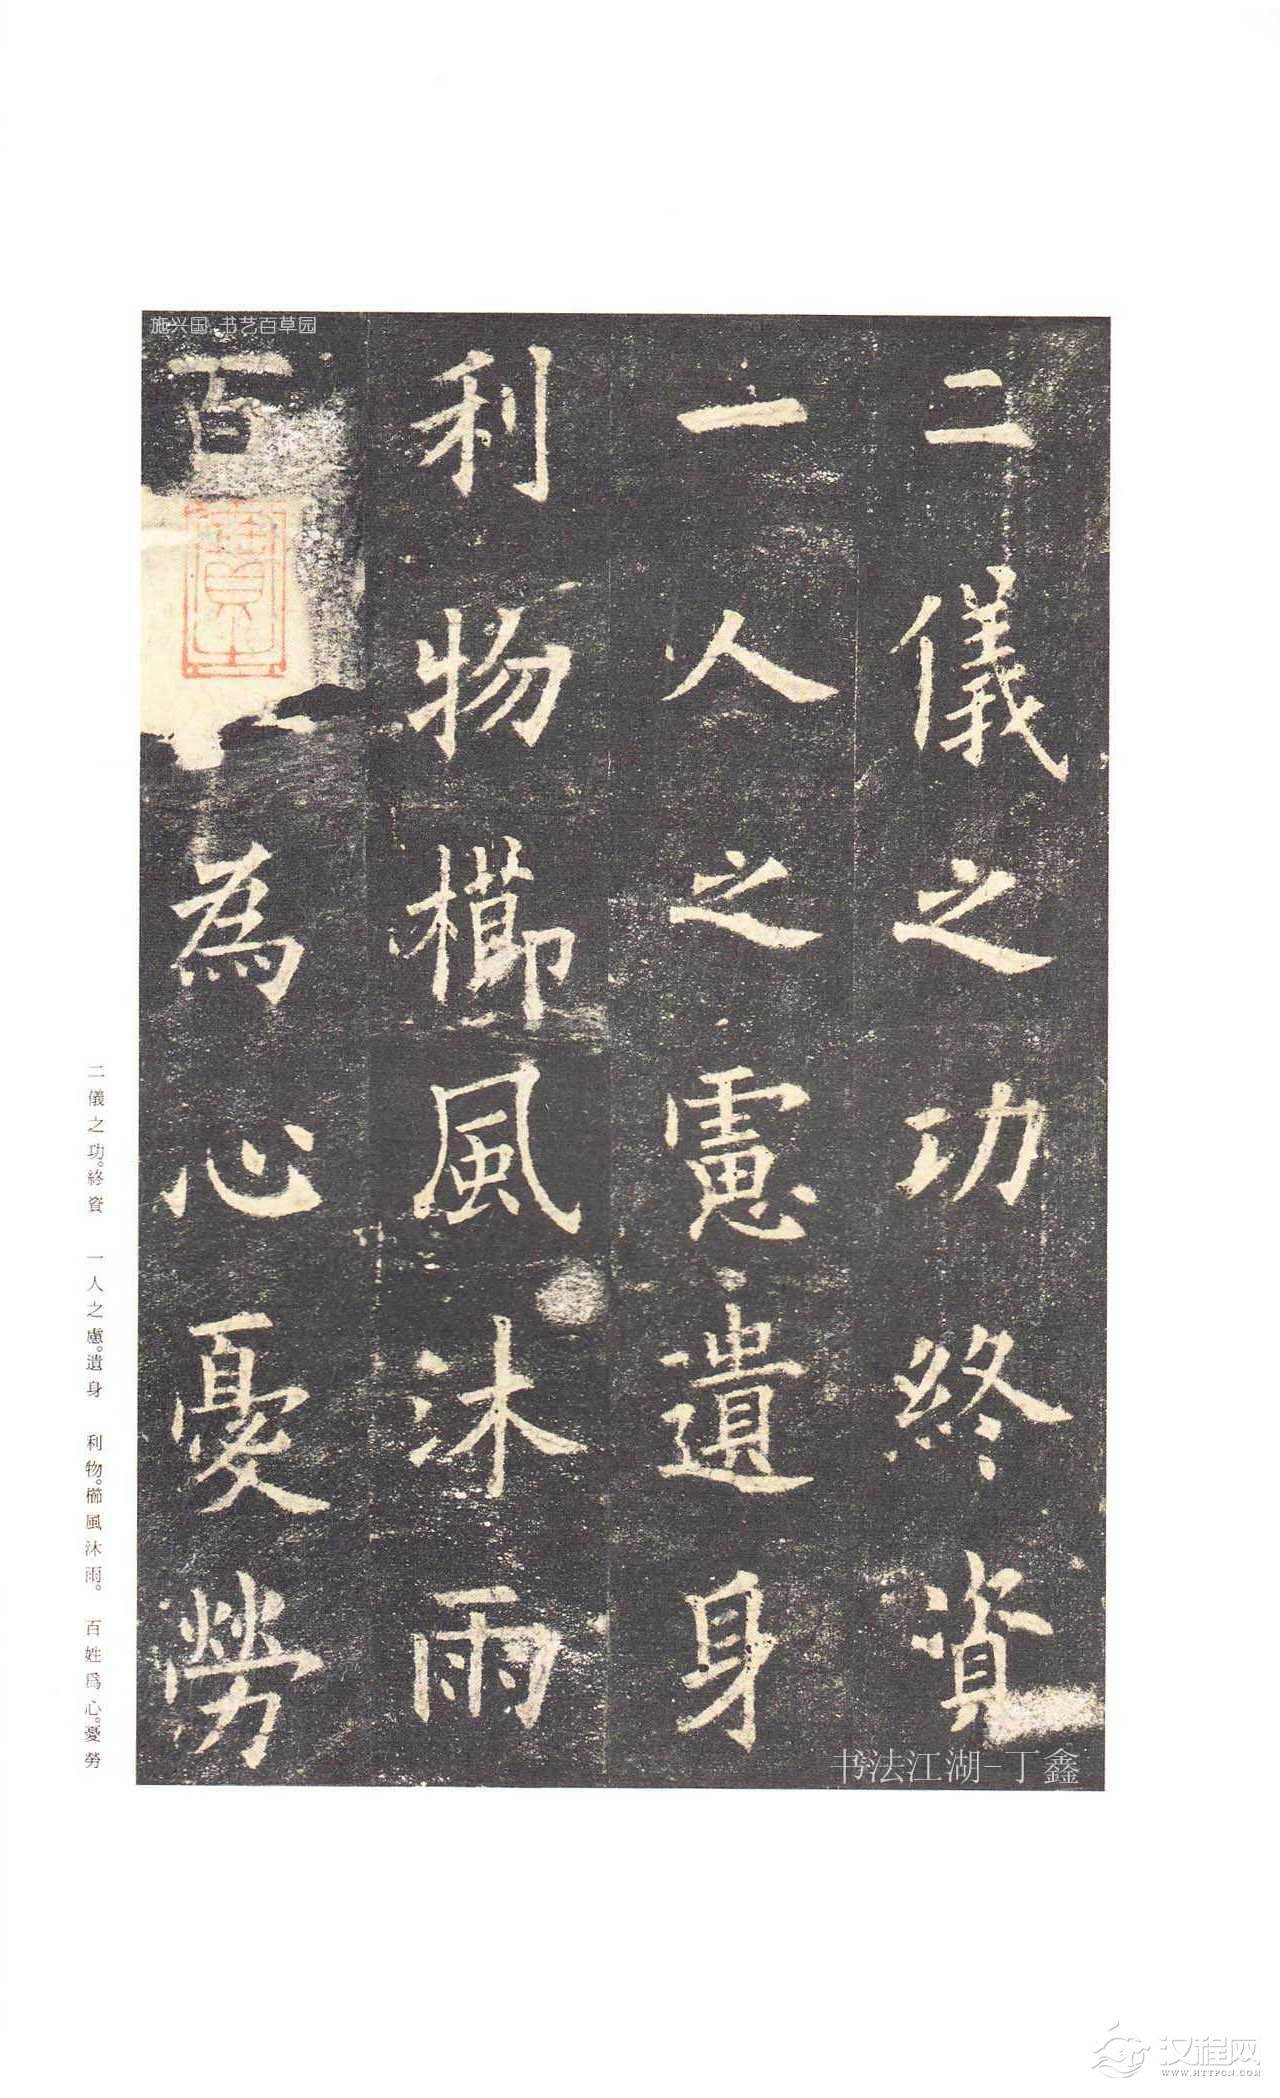 施兴国 书艺百草园
二儀之功終資
一人之慮遺身
利物櫛風沐雨
百為心憂勞
书法江湖-丁鑫
二儀之功。終資　一人之慮。遺身　利物。櫛風沐雨。　百姓爲心。憂勞
汉程网
WWW.HTTPCN.COM